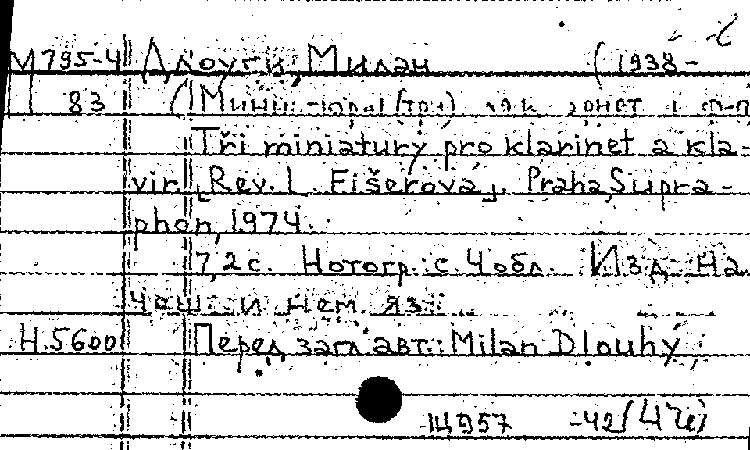 М 795-4 Длоуги, Милан (1938-
83 (Миниатюры (три) для кларнет и ф-п
Tři miniatury pro klarinet a kla-
vír [Rev. L. Fišerová]. Praha, Supra-
phon, 1974.
7, 2 с. Нотогр. с 4 обл. Изд. на
чеш. и нем. яз.
Н.5600 Перед загл. авт.: Milan Dlouhý
-42 (4Че)